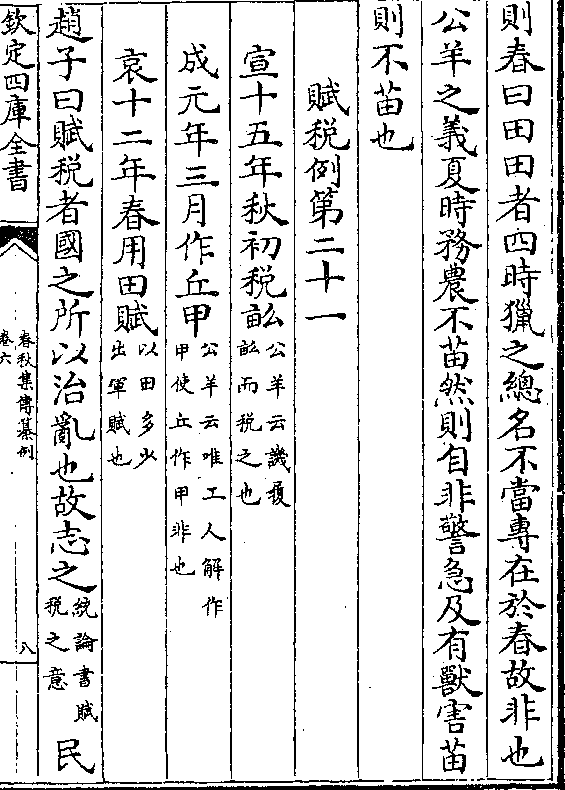 則春曰田田者四時獵之總名不當專在於春故非也
公羊之義夏時務農不苗然則自非警急及有獸害苗
則不苗也
賦税例第二十一
宣十五年秋初税畝公羊云譏履畝而税之也
成元年三月作丘甲公羊云唯工人解作甲使丘作甲非也
哀十二年春用田賦以田多少出軍賦也
趙子曰賦税者國之所以治亂也故志之統論書賦税之意民
欽定四庫全書
春秋集傳纂例
卷六
八